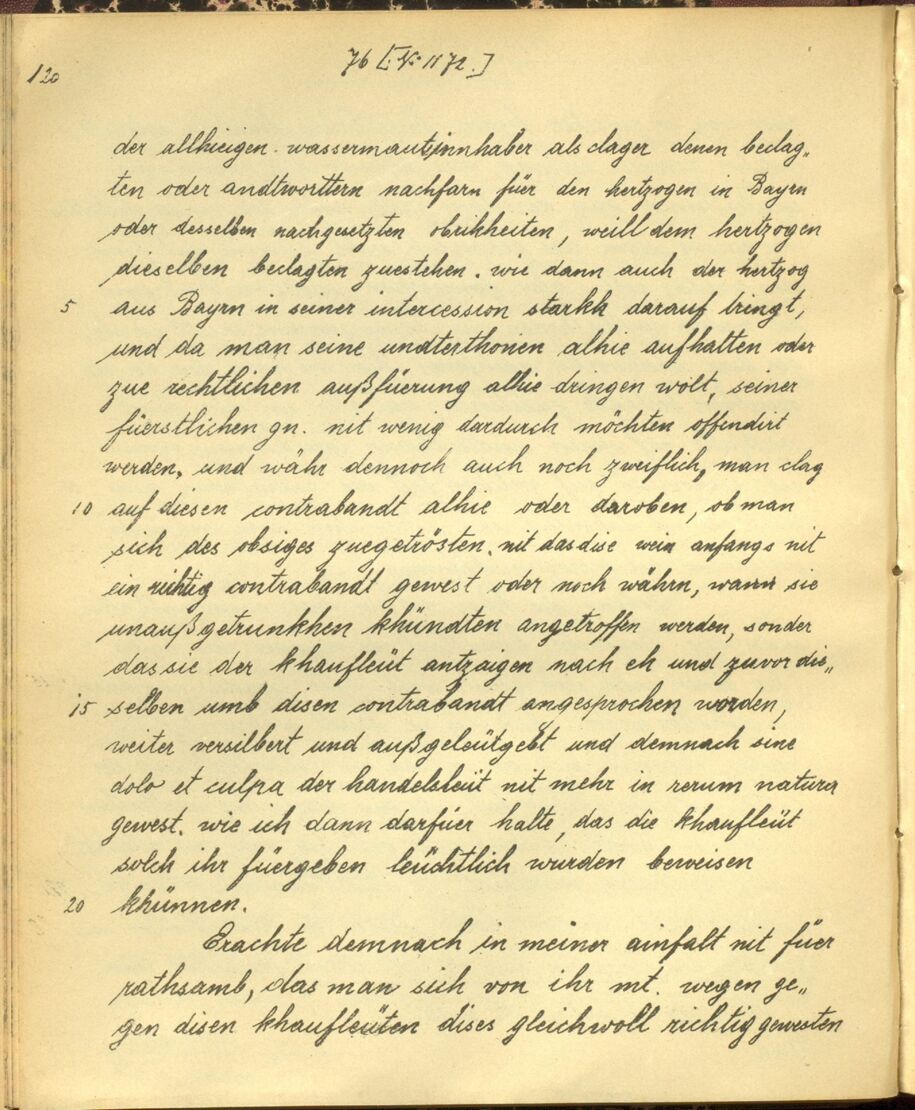 120
76 [: N: 1172.]
der allhieigen. wassermautjnnhaber als clager denen beclag„
ten oder andtworttern nachfarn füer den hertzogen in Bayrn
oder desselben nachgesetzten obrikheiten, weill dem hertzogen
dieselben beclagten zuestehen. wie dann auch der hertzog
5 aus Bayrn in seiner intercession starkh darauf tringt,
und da man seine undterthonen alhie aufhalten oder
zue rechtlichen außfüerung alhie dringen wolt, seiner
füerstlichen gn. nit wenig dardurch möchten offendirt
werden. und währ dennoch auch noch zweiflich, man clag
10 auf diesen contrabandt alhie oder daroben, ob man
sich des obsiges zuegetrösten. nit das dise wein anfangs nit
ein richtig contrabandt gewest oder noch währn, wann sie
unaußgetrunkhen khündten angetroffen werden, sonder
das sie der khaufleüt antzaigen nach eh und zuvor die„
15 selben umb disen contrabandt angesprochen worden,
weiter versilbert und außgeleütgebt und demnach sine
dolo et culpa der handelsleüt nit mehr in rerum natura
gewest. wie ich dann darfüer halte, das die khaufleüt
solch ihr füergeben leüchtlich wurden beweisen
20 khünnen.
Erachte demnach in meiner ainfalt nit füer
rathsamb, das man sich von ihr mt. wegen ge„
gen disen khaufleüten dises gleichwoll richtig gewesten